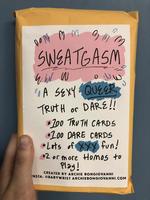 SWEATGASM
A SEXY QUEER
TRUTH OR DARE!!
•200 TRUTH CARDS
•200 DARE CARDS
•Lots of XXX fun!
•2 or more Homos to
Play!
CREATED BY ARCHIE BONGIOVANNI
INSTA: @BABYWRIST ARCHIEBONGIOVANNI.COM